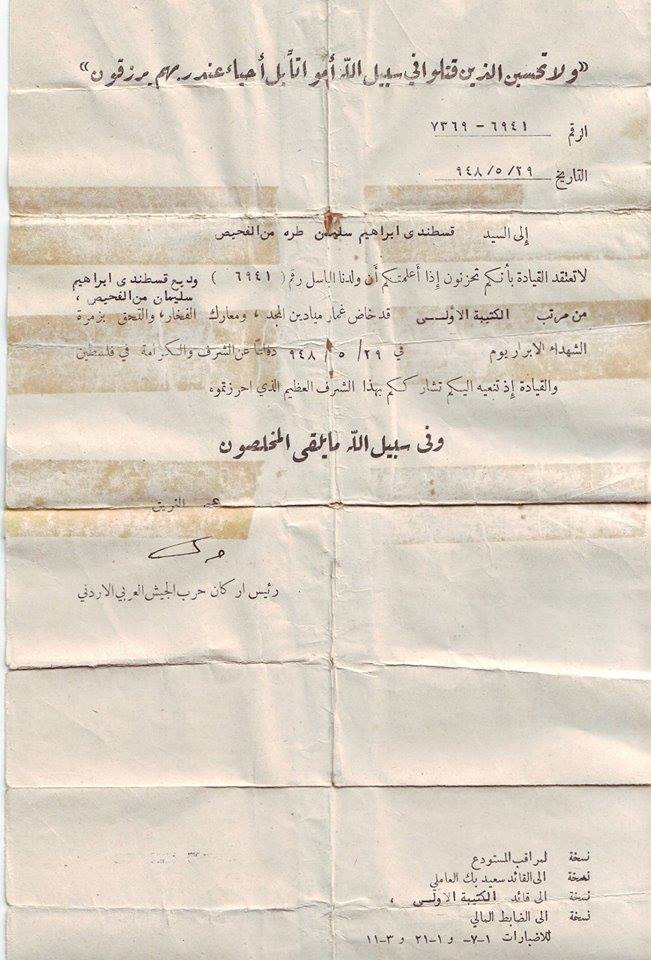 «ولا تحسبن الذين قتلوا في سبيل الله أمواتاً بل أحياء عند ربهم يرزقون»
الرقم ٦٩٤١ - ٧٣٦٩
التاريخ ٢٩ / ٥ / ٩٤٨
إلى السيد قسطندى ابراهيم سليمان طره من الفحيص
لا تعتقد القيادة بأنكم تحزنون إذا أعلمتكم أن ولدنا الباسل رقم ( ٦٩٤١ ) وديع قسطندى ابراهيم
سليمان من الفحيص ،
من مرتب الكتيبة الاولى قد خاض غمار ميادين المجد ، ومعارك الفخار ، والتحق بزمرة
الشهداء الابرار يوم في ٢٩ / ٥ / ٩٤٨ دفاعا عن الشرف والكرامة في فلسطين
والقيادة إذ تنعيه اليكم تشارككم بهذا الشرف العظيم الذي احرزتموه
وفى سبيل الله ما يلقى المخلصون
الفريق
رئيس اركان حرب الجيش العربي الاردني
نسخة لمراقب المستودع
نسخة الى القائد سعيد بك العاملي
نسخة الى قائد الكتيبة الاولى ،
نسخة الى الضابط المالي
للاضبارات ١-٧- و ١-٢١ و ٣-١١